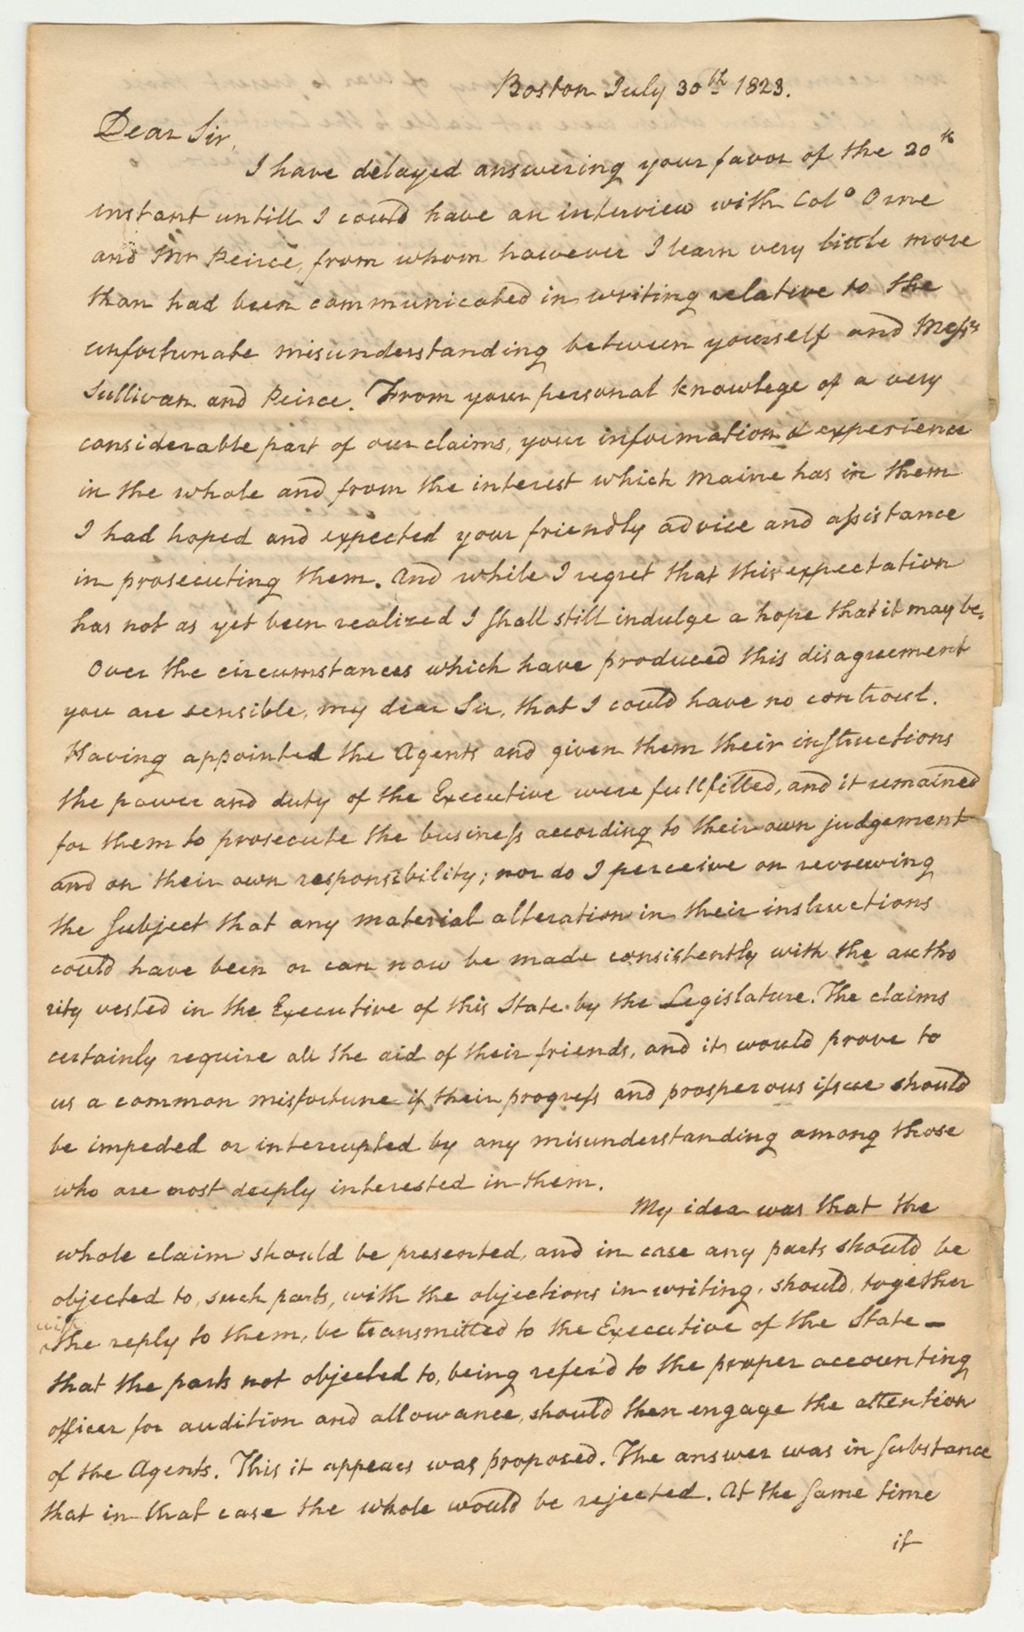 Boston July 30th 1823.
Dear Sir,
I have delayed answering your favor of the 20th
instant untill I could have an interview with Colo Orne
and Mr Peirce, from whom however I learn very little more
than had been communicated in writing relative to the
unfortunate misunderstanding between yourself and Messrs
Sullivan and Peirce. From your personal knowlege of a very
considerable part of our claims, your information & experience
in the whole and from the interest which Maine has in them
I had hoped and expected your friendly advice and assistance
in prosecuting them. And while I regret that this expectation
has not as yet been realized I shall still indulge a hope that it may be.
Over the circumstances which have produced this disagreement
you are sensible, my dear Sir, that I could have no controul.
Having appointed the Agents and given them their instructions
the power and duty of the Executive were fullfilled, and it remained
for them to prosecute the business according to their own judgement
and on their own responsibility; nor do I perceive on reviewing
the subject that any material alteration in their instructions
could have been or can now be made consistently with the autho
rity vested in the Executive of this State by the Legislature. The claims
certainly require all the aid of their friends, and it would prove to
us a common misfortune if their progress and prosperous issue should
be impeded or interrupted by any misunderstanding among those
who are most deeply interested in them.
My idea was that the
whole claim should be presented, and in case any parts should be
objected to, such parts, with the objections in writing, should, together
with
the reply to them, be transmitted to the Executive of the State —
that the parts not objected to, being refer'd to the proper accounting
officer for audition and allowance, should then engage the attention
of the Agents. This it appears was proposed. The answer was in substance
that in that case the whole would be rejected. At the same time
it